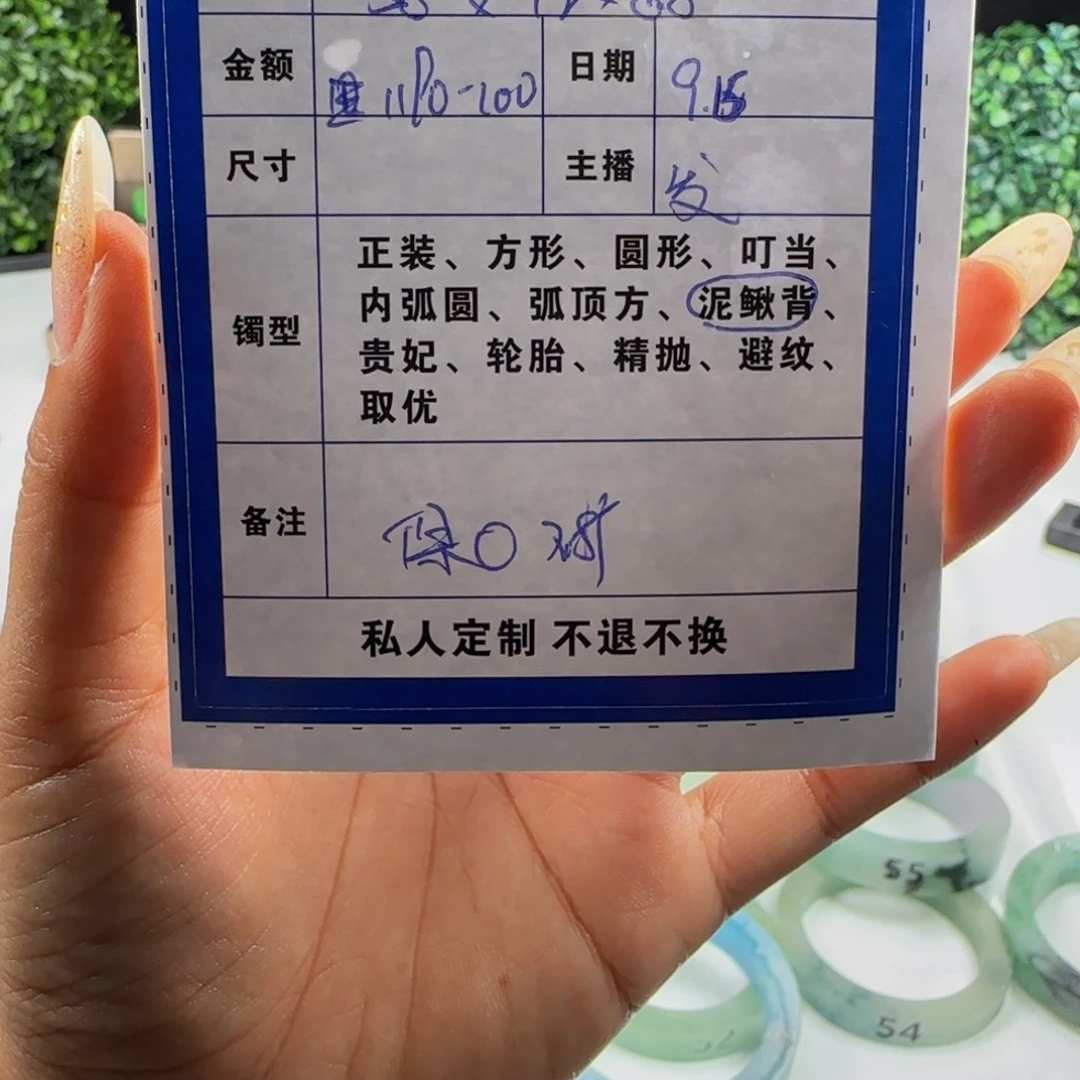 金额 1180-100 日期 9.15
尺寸 主播 发
镯型 正装、方形、圆形、叮当、
内弧圆、弧顶方、泥鳅背、
贵妃、轮胎、精抛、避纹、
取优
备注 保〇
私人定制 不退不换
55
54
52